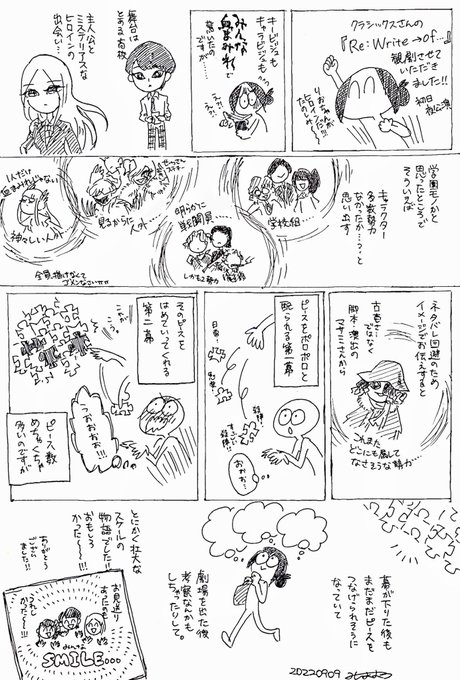 クラシックスさんの
『Re:Write→of…』
観劇させて
いただき
ました!!
初日
夜公演
キービジュも
キャラビジュも
みんな
血まみれで
驚いたの
ですが…
えっ?!
舞台は
とある高校
主人公と
ミステリアスな
ヒロインの
出会い…
学園モノかと
思ったところで
そういえば
キャラクター
多数勢力
なかったか…?と
思い出す
学校組…
明らかに
戦闘員…
しかも2勢力
見るからに人外…
1人だけ
血まみれじゃない
神々しい人外…
全員描けなくて
ゴメンなさい
ネタバレ回避のため
イメージでお伝えすると
ではなく
脚本・演出の
さんから
これまた
どこにも属して
なさそうな勢力…
ピースをポロポロと
配られる第一幕
おおお…
そのピースを
はめていってくれる
第二幕
うおおおお!!!
ピース数
めちゃくちゃ
多いのですが
幕が下りた後も
まだまだピースを
つなげられそうに
なっていて
劇場を出た後
考察なんかも
しちゃったりして。
とにかく壮大な
スケールの
物語でした!!
おもしろ
かった〜〜!!!
ありがとう
ござい
ました!!
お見送り
あったのも
うれし
かった〜!!!
みんなで
SMILE…
20220909